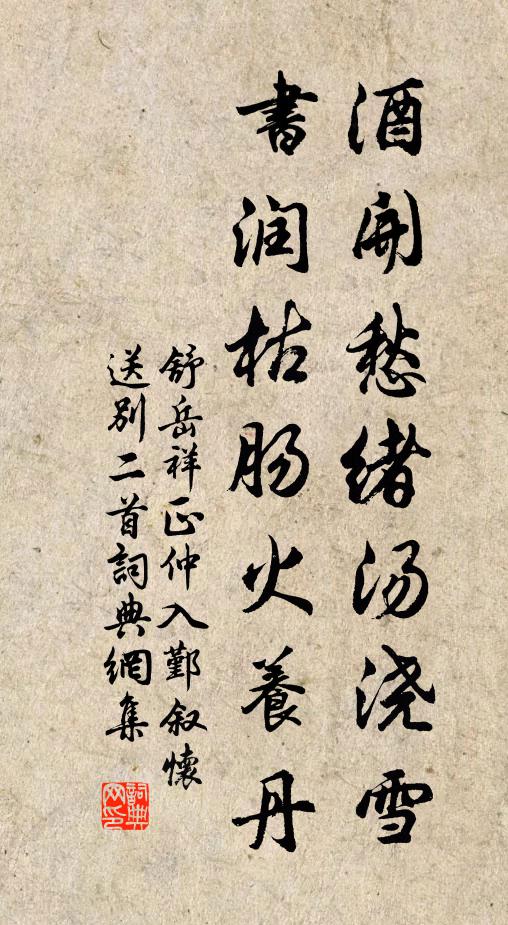 酒开愁绪汤浇雪
書润枯肠火養丹
舒岳祥正仲入鄞叙懷
送别二首詞典網集
詞典
网印